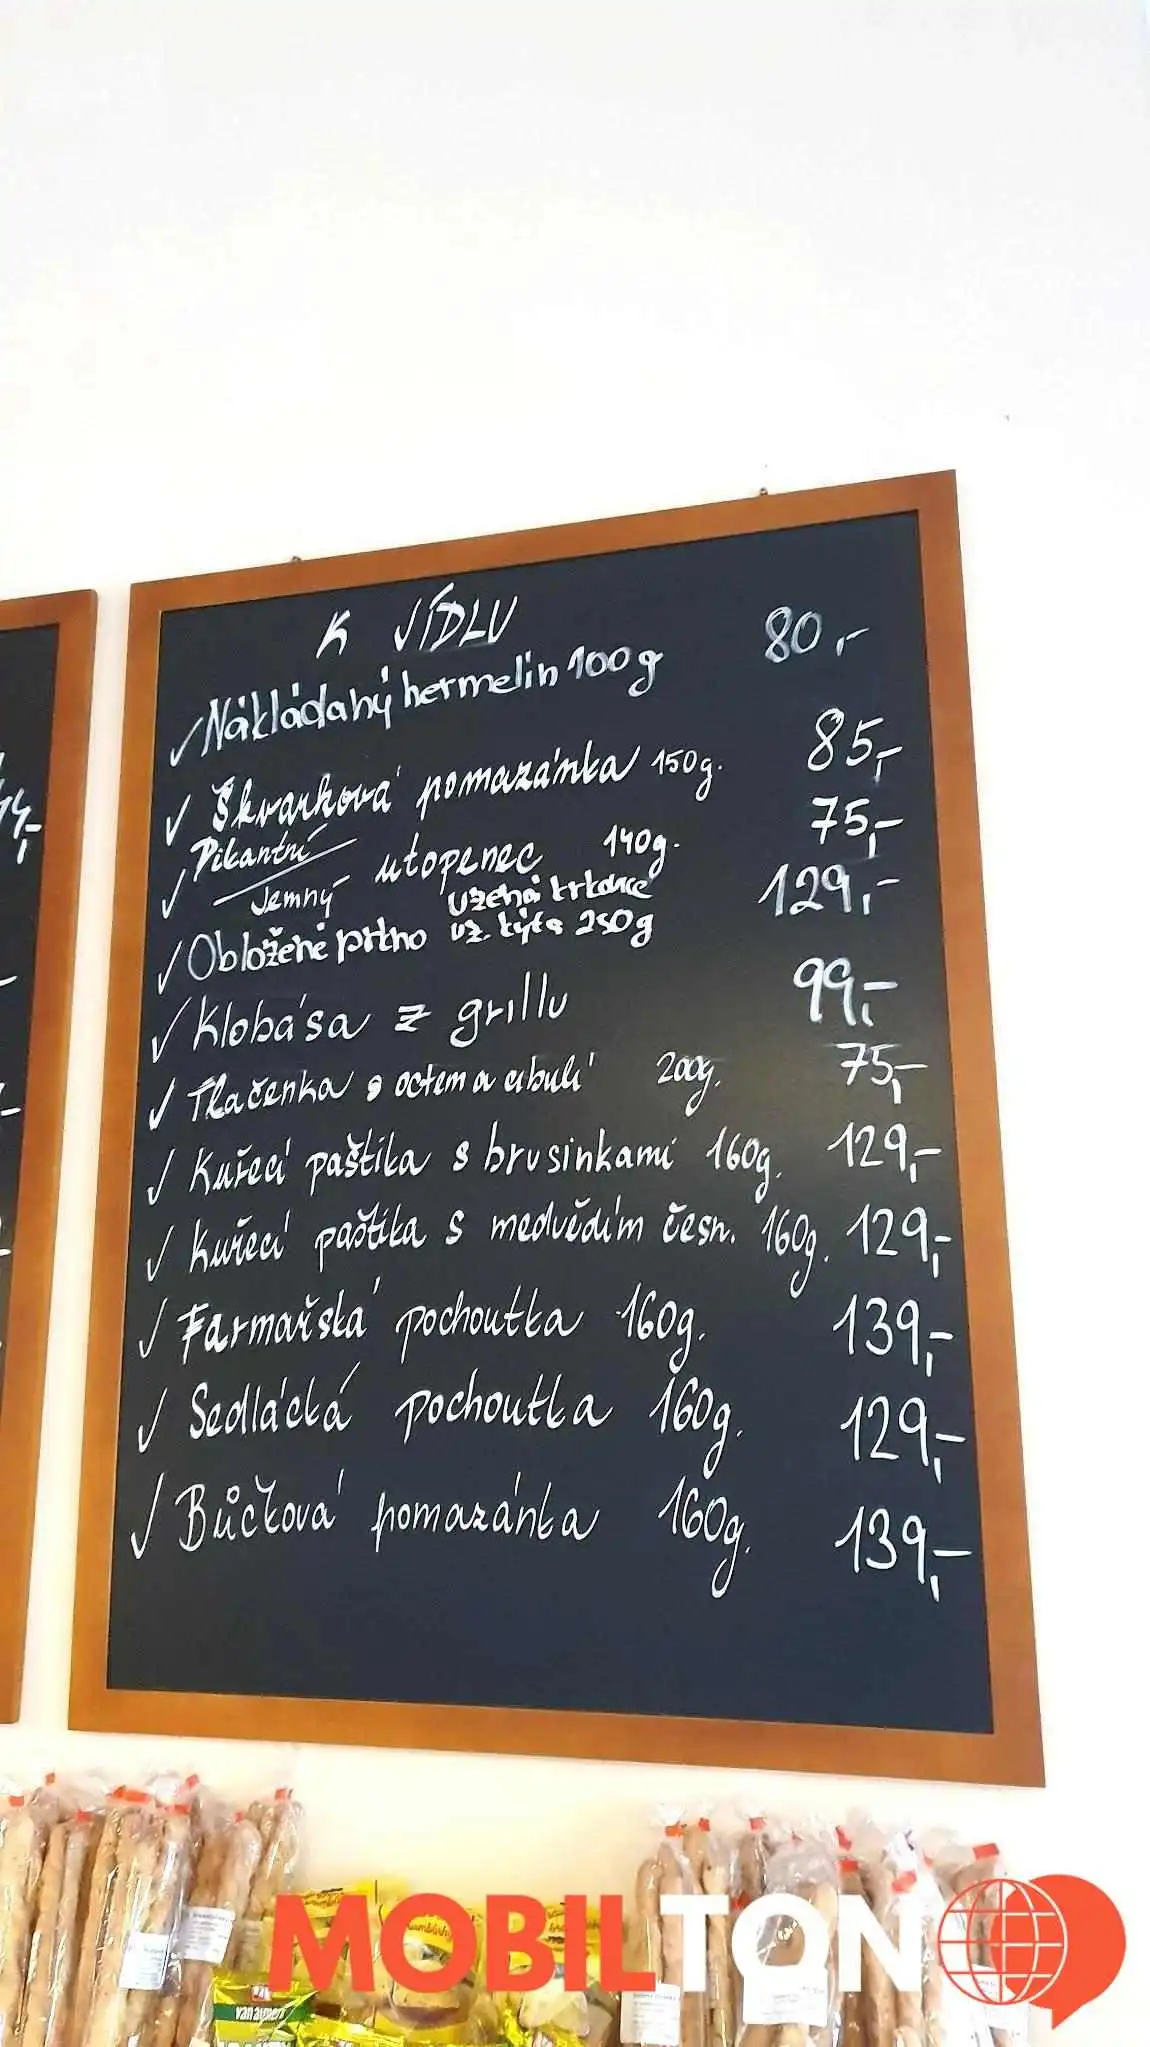 K JÍDLU
✓ Nakládahý hermelin 100g 80,-
✓ Škvarková pomazánka 150g. 85,-
✓ Pikantní
Jemný utopenec 140g. 75,-
✓ Obložené prkno uzená krkovice
uz. kýta 250g 129,-
✓ Klobása z grillu 99,-
✓ Tlačenka s octem a cibulí 200g. 75,-
✓ Kuřecí paštika s brusinkami 160g. 129,-
✓ Kuřecí paštika s medvědím česn. 160g. 129,-
✓ Farmařská pochoutka 160g. 139,-
✓ Sedlácká pochoutka 160g. 129,-
✓ Bůčková pomazánka 160g. 139,-
MOBILTON